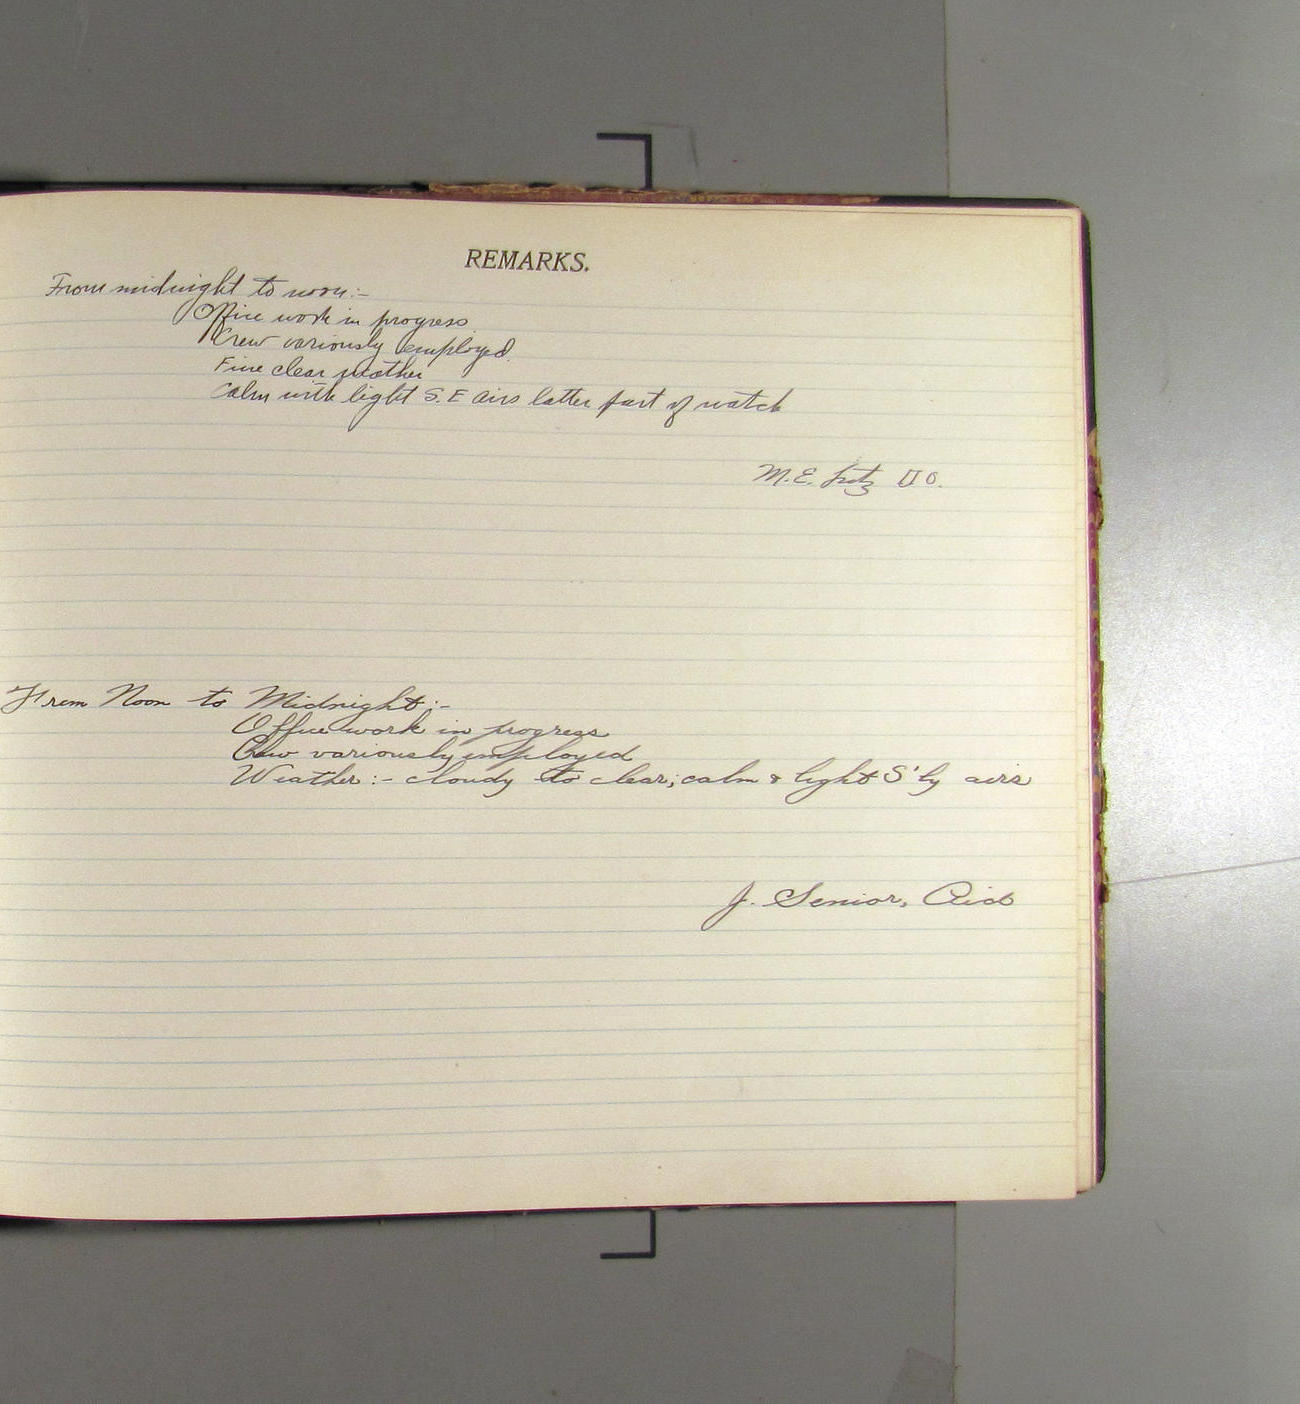 REMARKS.
From midnight to noon:-
Office work in progress
Crew variously employed.
Fine clear weather
Calm with light S.E airs latter part of watch
M.E. O.
From Noon to Midnight:-
Office work in progress
Crew variously employed
Weather:- cloudy to clear; calm & light S'ly airs
J. Senior, Aid